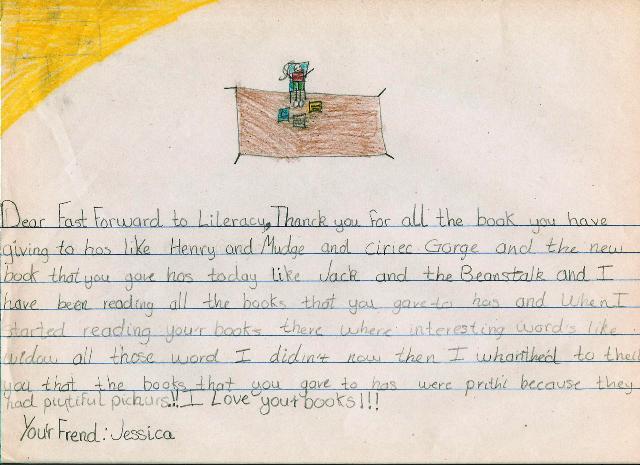 Dear Fast Forward to Lileracy, Thanck you for all the book you have
giving to has like Henry and Mudge and ciriec Gorge and the new
book that you gave has today like Jack and the Beanstalk and I
have been reading all the books that you gave to has and when I
started reading your books there where interesting word's like
widow all those word I didin't now then I whanthed to thell
you that the books that you gave to has were prithi because they
had piutiful pichurs!! I Love your books!!!
Your Frend: Jessica